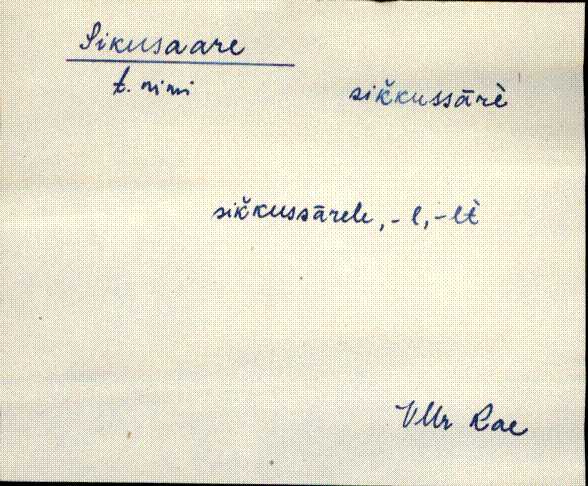 Sikusaare
t. nimi
sik̆kussārè
sik̆kussārele, -l, -lt̀
VMr Rae